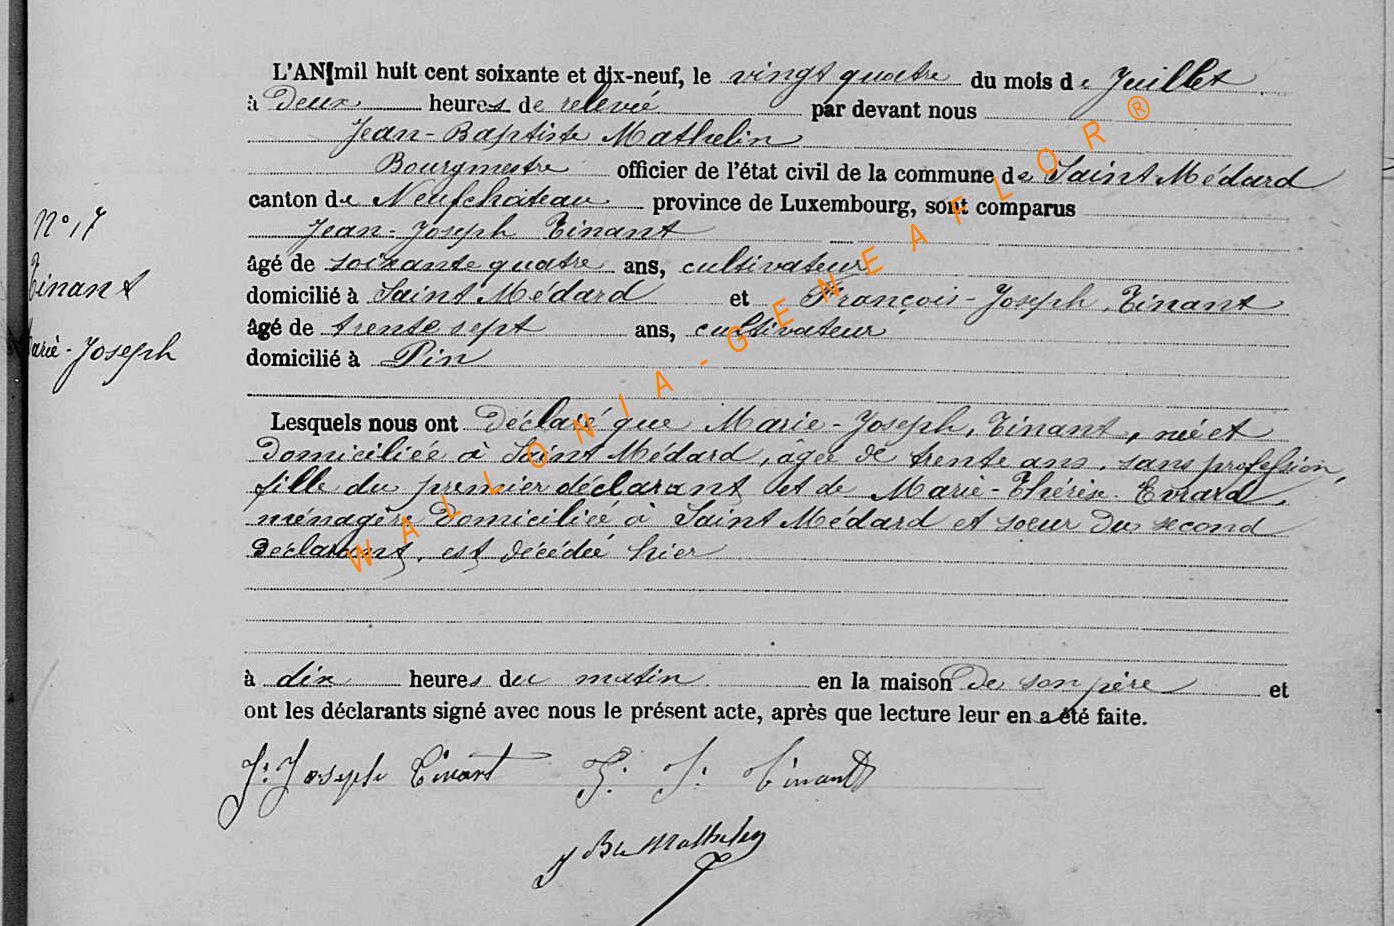 L'AN mil huit cent soixante et dix-neuf, le vingt quatre du mois de Juillet
à Deux heures de relevée par devant nous
Jean-Baptiste Mathelin
Bourgmestre officier de l'état civil de la commune de Saint Médard
canton de Neufchâteau province de Luxembourg, sont comparus
Jean-Joseph Tinant
âgé de soixante quatre ans, cultivateur
domicilié à Saint Médard et François-Joseph Tinant
âgé de trente sept ans, cultivateur
domicilié à Pin
N° 17
Tinant
Marie-Joseph
Lesquels nous ont Déclaré que Marie-Joseph, Tinant, née et
Domiciliée à Saint Médard, âgée de trente ans, sans profession,
fille du premier déclarant et de Marie-Thérèse Evrard,
ménagère Domiciliée à Saint Médard et soeur Du second
Déclarant, est décédée hier
à dix heures du matin en la maison De son père et
ont les déclarants signé avec nous le présent acte, après que lecture leur en a été faite.
J. Joseph Tinant F. J. Tinant
J Bte Mathelin
WALLONIA-GENEAFLOR®